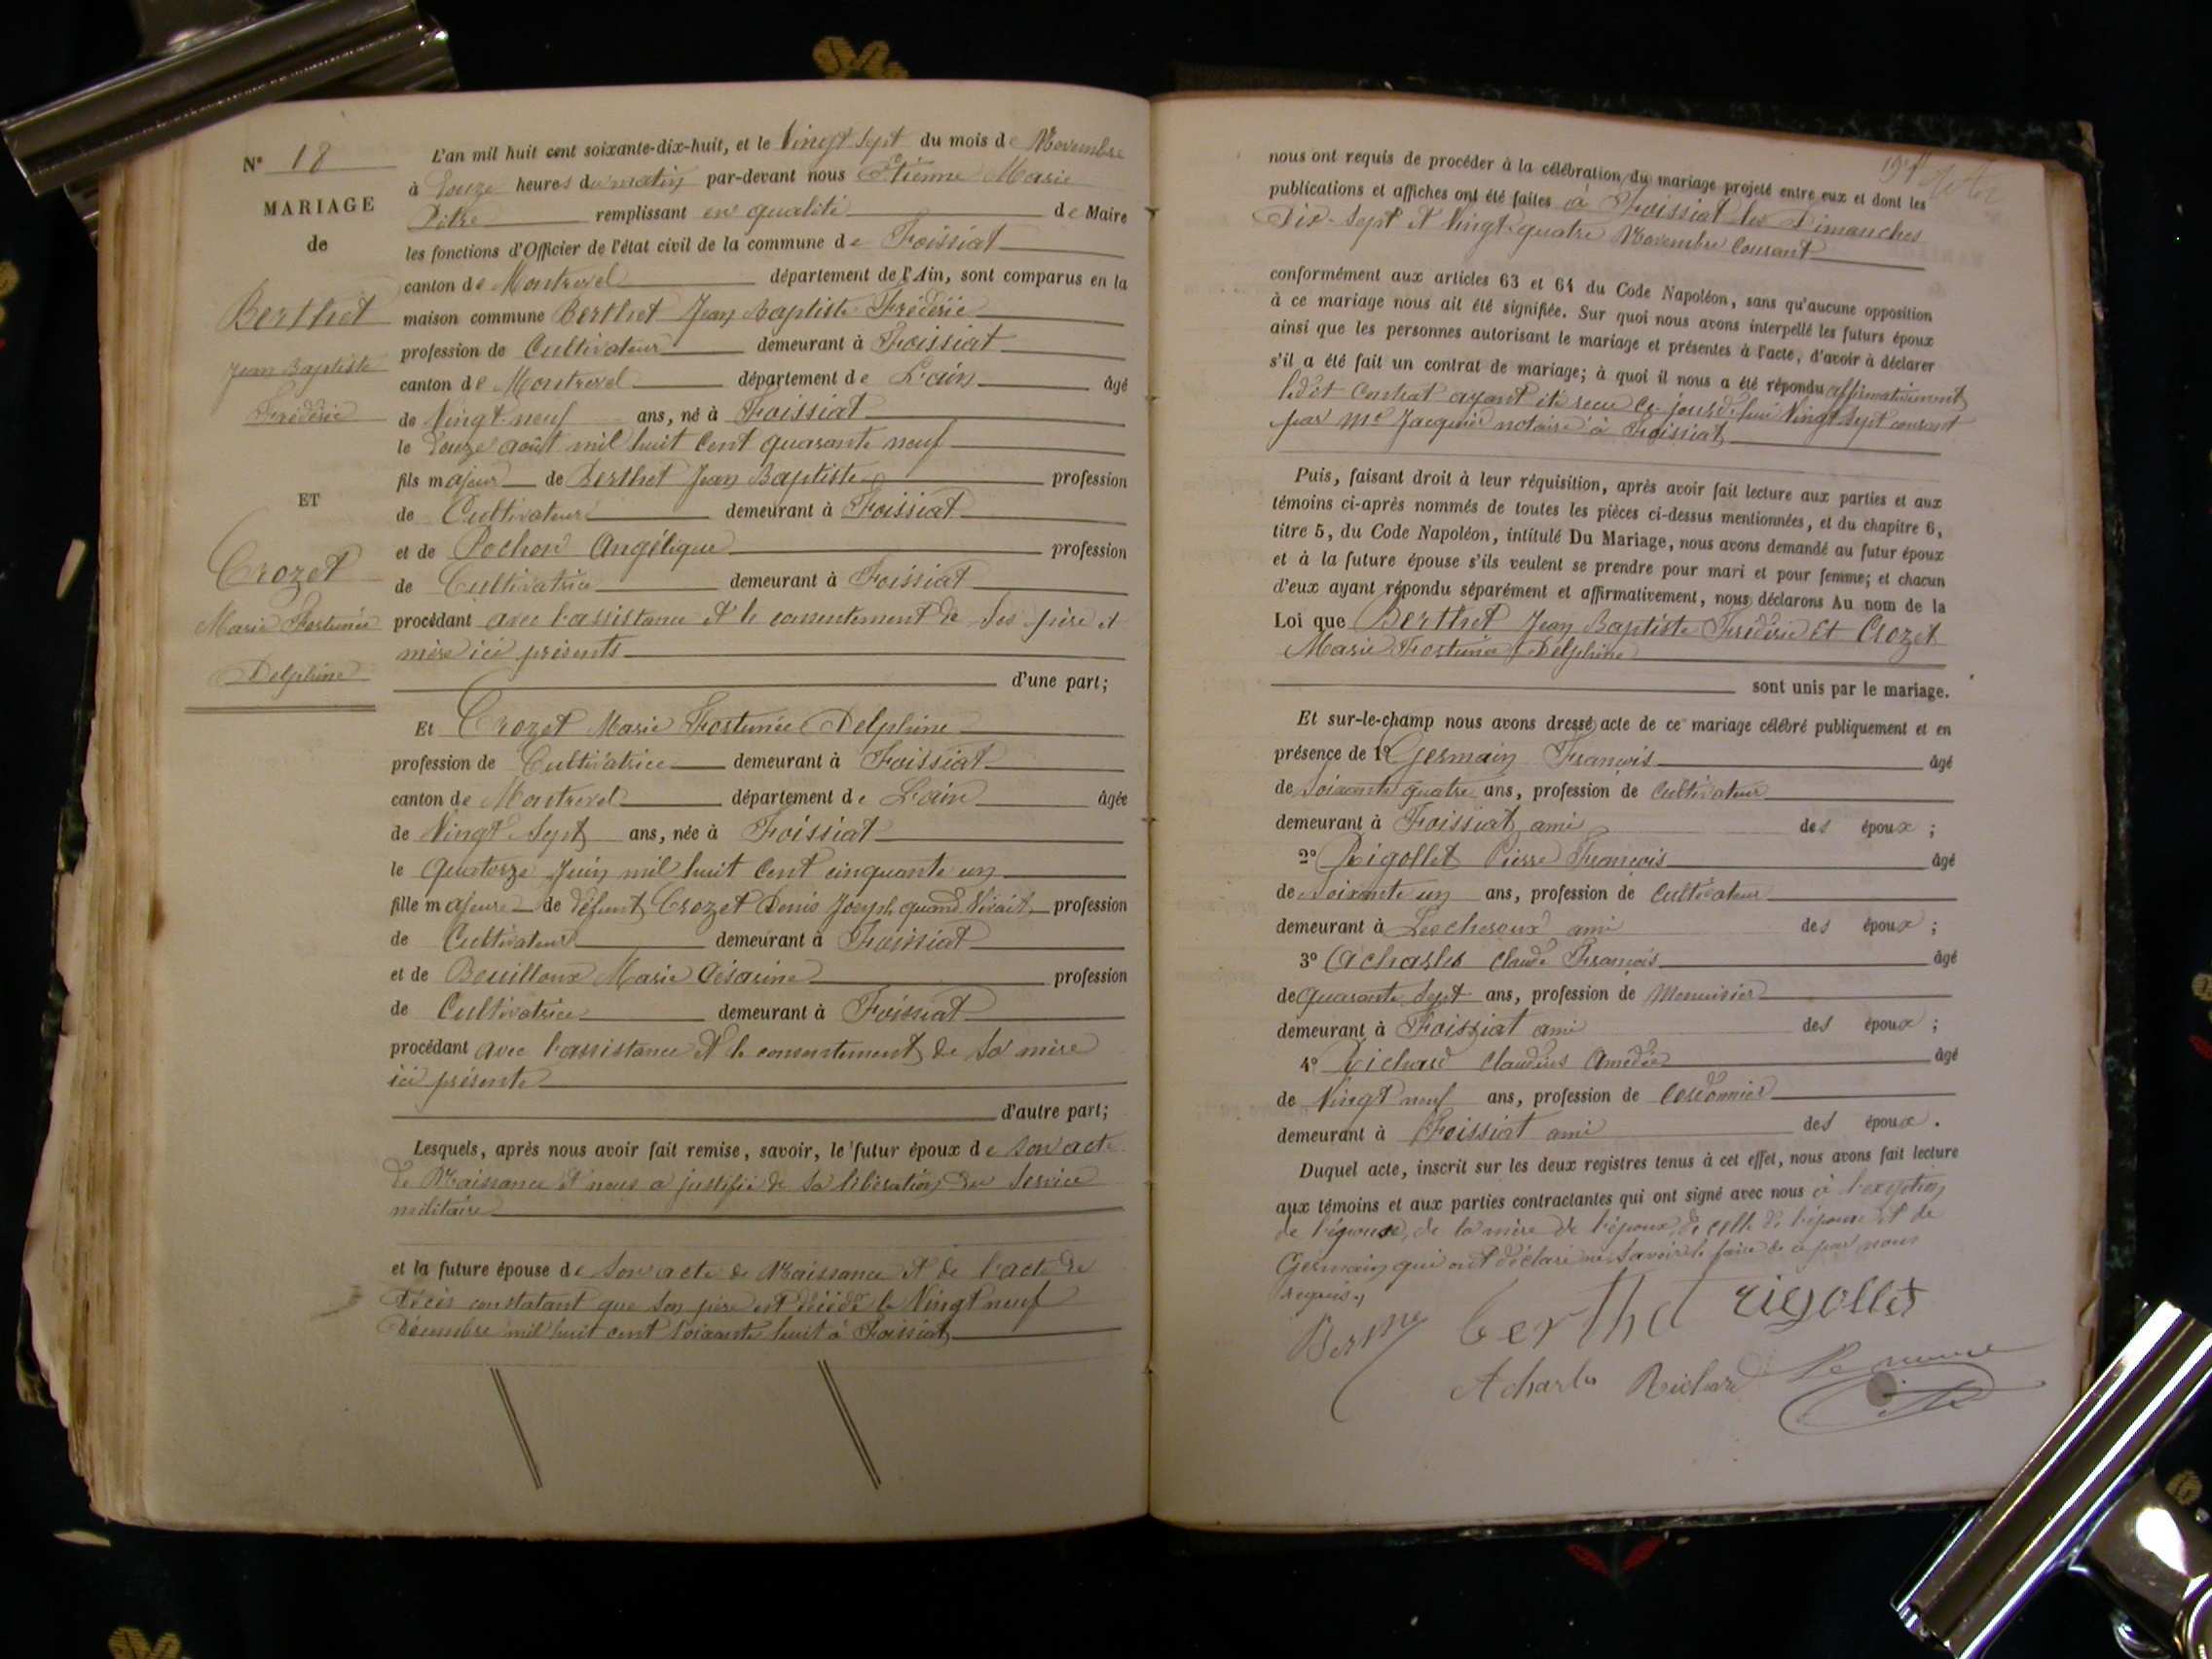 N° 18
MARIAGE
de
Berthet
Jean Baptiste
Frédéric
ET
Crozet
Marie Fortunée
Delphine
L'an mil huit cent soixante-dix-huit, et le Vingt sept du mois de Novembre
à heures du matin par-devant nous Etienne Marie
Pitre remplissant en qualité de Maire
les fonctions d'Officier de l'état civil de la commune de Foissiat
canton de Montrevel département de l'Ain, sont comparus en la
maison commune Berthet Jean Baptiste Frédéric
profession de Cultivateur demeurant à Foissiat
canton de Montrevel département de L'ain âgé
de Vingt-neuf ans, né à Foissiat
le Douze août mil huit cent quarante neuf
fils majeur de Berthet Jean Baptiste profession
de Cultivateur demeurant à Foissiat
et de Pochon Angélique profession
de Cultivatrice demeurant à Foissiat
procédant avec l'assistance et le consentement de ses père et
mère ici présents
d'une part;
Et Crozet Marie Fortunée Delphine
profession de Cultivatrice demeurant à Foissiat
canton de Montrevel département de L'ain âgée
de Vingt Sept ans, née à Foissiat
le quatorze Juin mil huit cent cinquante un
fille majeure de défunt Crozet Denis Joseph quand Vivait profession
de Cultivateur demeurant à Foissiat
et de Bouilloux Marie Césarine profession
de Cultivatrice demeurant à Foissiat
procédant avec l'assistance et le consentement de Sa mère
ici présente
d'autre part;
Lesquels, après nous avoir fait remise, savoir, le futur époux de son acte
de Naissance et nous a justifié de Sa libération du Service
militaire
et la future épouse de Son acte de Naissance et de l'acte de
Décès constatant que Son père est décédé le Vingt neuf
Décembre mil huit cent soixante huit à Foissiat
nous ont requis de procéder à la célébration du mariage projeté entre eux et dont les
publications et affiches ont été faites à Foissiat les Dimanches
Dix-Sept et Vingt-quatre Novembre Courant
conformément aux articles 63 et 64 du Code Napoléon, sans qu'aucune opposition
à ce mariage nous ait été signifiée. Sur quoi nous avons interpellé les futurs époux
ainsi que les personnes autorisant le mariage et présentes à l'acte, d'avoir à déclarer
s'il a été fait un contrat de mariage; à quoi il nous a été répondu affirmativement
ledit Contrat ayant été recu ce jourd'hui Vingt Sept courant
par Me Jacquier notaire à Foissiat
Puis, faisant droit à leur réquisition, après avoir fait lecture aux parties et aux
témoins ci-après nommés de toutes les pièces ci-dessus mentionnées, et du chapitre 6,
titre 5, du Code Napoléon, intitulé Du Mariage, nous avons demandé au futur époux
et à la future épouse s'ils veulent se prendre pour mari et pour femme; et chacun
d'eux ayant répondu séparément et affirmativement, nous déclarons Au nom de la
Loi que Berthet Jean Baptiste Frédéric Et Crozet
Marie Fortunée Delphine
sont unis par le mariage.
Et sur-le-champ nous avons dressé acte de ce mariage célébré publiquement et en
présence de 1° Germain François âgé
de Soixante quatre ans, profession de Cultivateur
demeurant à Foissiat ami des époux ;
2° Rigollet Pierre François âgé
de Soixante un ans, profession de Cultivateur
demeurant à Lescheroux ami des époux ;
3° Acharles Claude François âgé
de quarante Sept ans, profession de Menuisier
demeurant à Foissiat ami des époux ;
4° Richard Claudius Amédée âgé
de Vingt neuf ans, profession de Cordonnier
demeurant à Foissiat ami des époux .
Duquel acte, inscrit sur les deux registres tenus à cet effet, nous avons fait lecture
aux témoins et aux parties contractantes qui ont signé avec nous à l'exeption
de l'épouse, de la mère de l'époux, de celle de l'épouse et de
Germain qui ont déclaré ne Savoir le faire de ce par nous
requis.
berthet rigollet
Acharles Richard Le maire